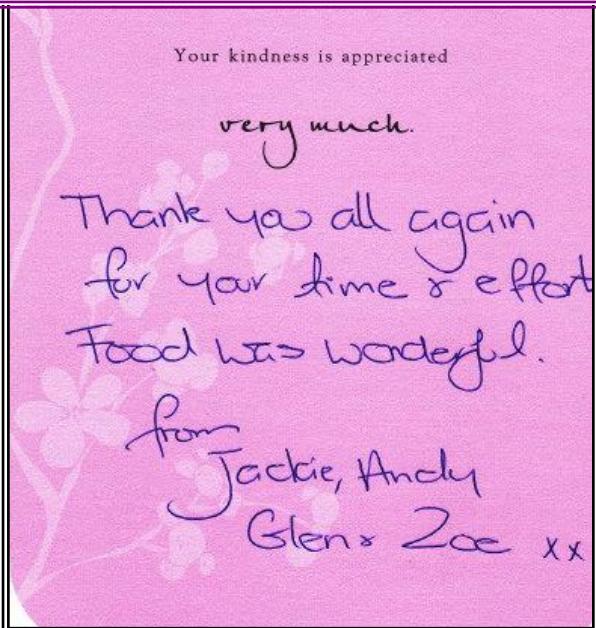 Your kindness is appreciated
very much.
Thank you all again
for your time & effort
Food was wonderful.
from
Jackie, Andy
Glen & Zoe xx